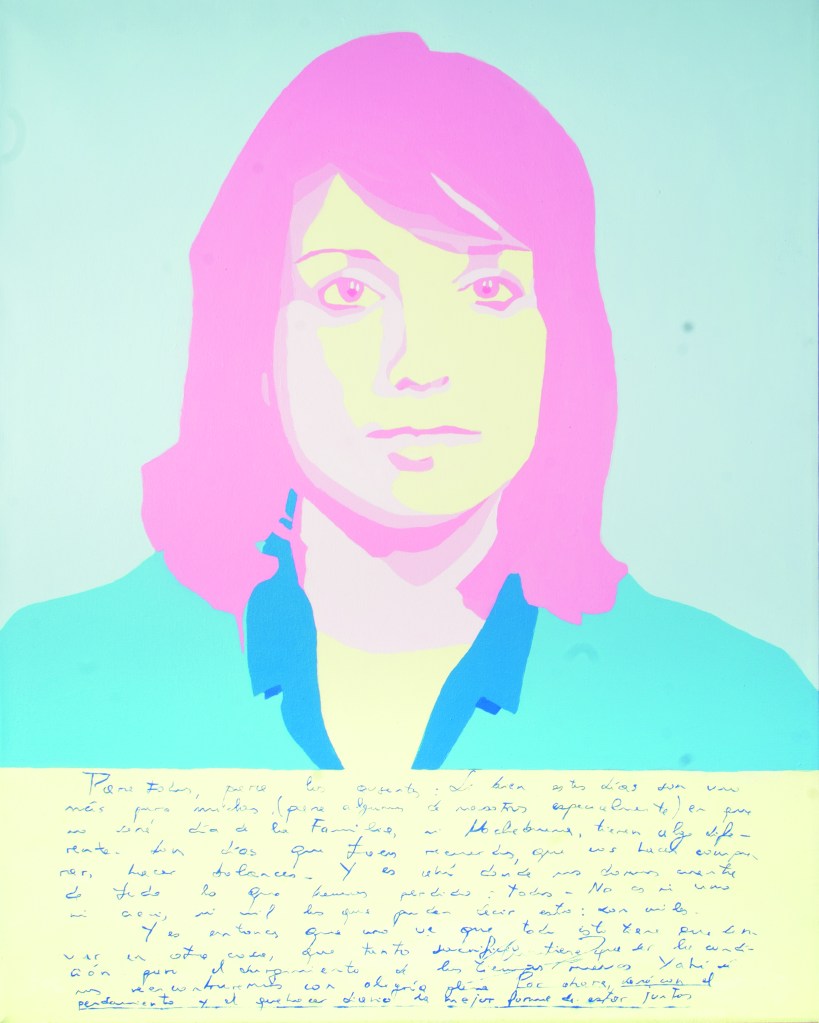 Para todos, para los ausentes: Si bien estos días son uno
más para muchos, (para algunos de nosotros especialmente) en que
no será día de la Familia, ni Nochebuena, tienen algo dife-
rente. Son días que traen recuerdos, que nos hacen compa-
rar, hacer balances. Y es ahí donde nos damos cuenta
de todo lo que hemos perdido: todos. No es ni uno
ni mil los que pueden decir esto: son miles.
Y es entonces que uno ve que todo esto tiene que
en otra cosa, que tanto sacrificio tiene que ser la condi-
ción para el surgimiento de los tiempos nuevos. Y ahí sí
nos reencontraremos con alegría plena. Por ahora, será con el
pensamiento y el quehacer diario la mejor forma de estar juntos